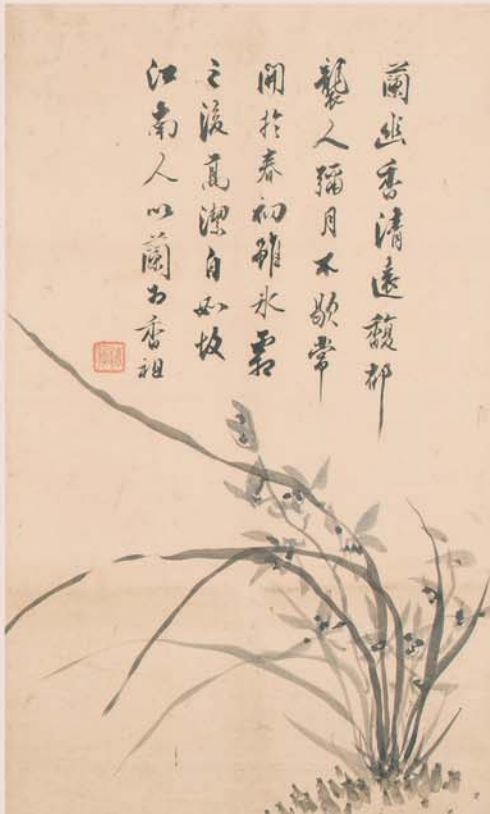 蘭幽香清遠馥郁
襲人彌月不歇常
開於春初雖氷霜
之後高潔自如故
江南人以蘭為香祖